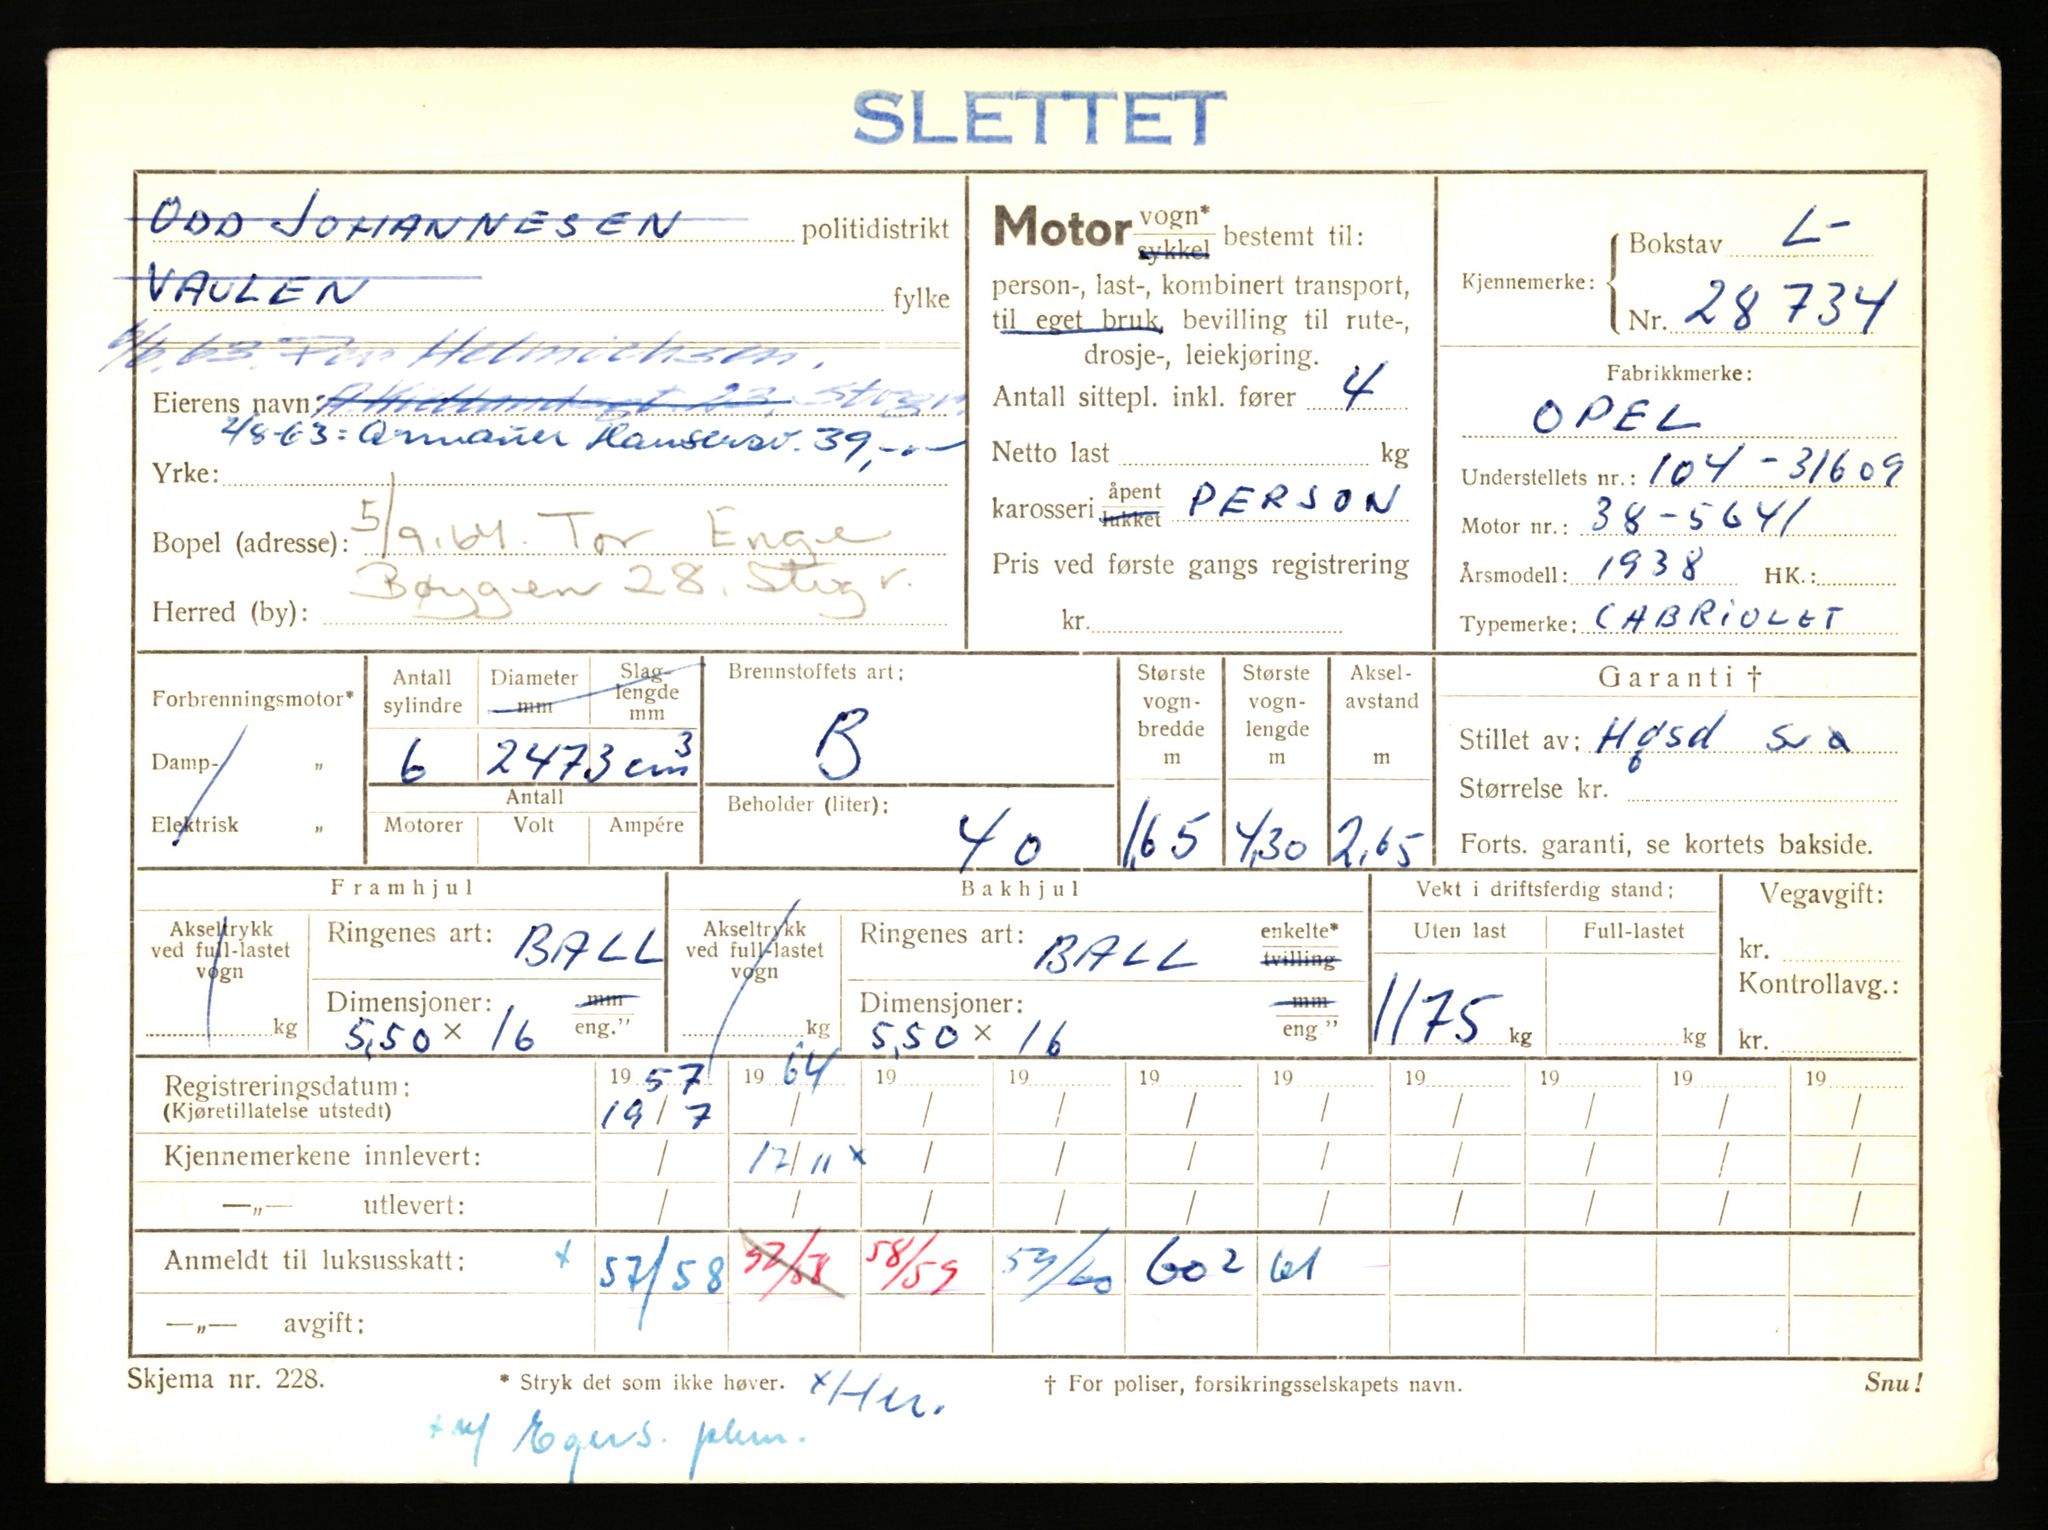 SLETTET
ODD JOHANNESEN politidistrikt
VAULEN fylke
6/6.63. Helmichsen.
Eierens navn: 23, Stvgr.
2/8-63: Armauer Hansensv. 39,
Yrke:
Bopel (adresse): 5/9.64. Tor Enge
Bøygen 28. Stvgr.
Herred (by):
Motor vogn*
sykkel bestemt til:
person-, last-, kombinert transport,
til eget bruk, bevilling til rute-,
drosje-, leiekjøring.
Antall sittepl. inkl. fører 4
Netto last kg
karosseri åpent
lukket PERSON
Pris ved første gangs registrering
kr.
Kjennemerke: Bokstav L-
Nr. 28734
Fabrikkmerke:
OPEL
Understellets nr.: 104-31609
Motor nr.: 38-5641
Årsmodell: 1938 HK.:
Typemerke: CABRIOLET
Forbrenningsmotor*
Damp- „
Elektrisk „
Antall sylindre
6
Diameter mm
Slaglengde mm
2473 cm3
Antall
Motorer Volt Ampére
Brennstoffets art:
B
Beholder (liter):
40
Største vognbredde m
1,65
Største vognlengde m
4,30
Akselavstand m
2,65
Garanti †
Stillet av:
Størrelse kr.
Forts. garanti, se kortets bakside.
Framhjul
Akseltrykk ved full-lastet vogn
kg
Ringenes art: BALL
Dimensjoner: mm
5,50 × 16 eng."
Bakhjul
Akseltrykk ved full-lastet vogn
kg
Ringenes art: BALL enkelte*
tvilling
Dimensjoner: mm
5,50 × 16 eng "
Vekt i driftsferdig stand:
Uten last Full-lastet
1175 kg kg
Vegavgift:
kr.
Kontrollavg.:
kr.
Registreringsdatum: 19 57 19 64 19 19 19 19 19 19 19 19
(Kjøretillatelse utstedt) 19/7 / / / / / / / / /
Kjennemerkene innlevert: / 17/11 x / / / / / / / /
—„— utlevert: / / / / / / / / / /
Anmeldt til luksusskatt: x 57/58 57/58 58/59 59/60 60 2 61
—„— avgift:
Skjema nr. 228. * Stryk det som ikke høver. x Her. † For poliser, forsikringsselskapets navn. Snu!
x Egers.